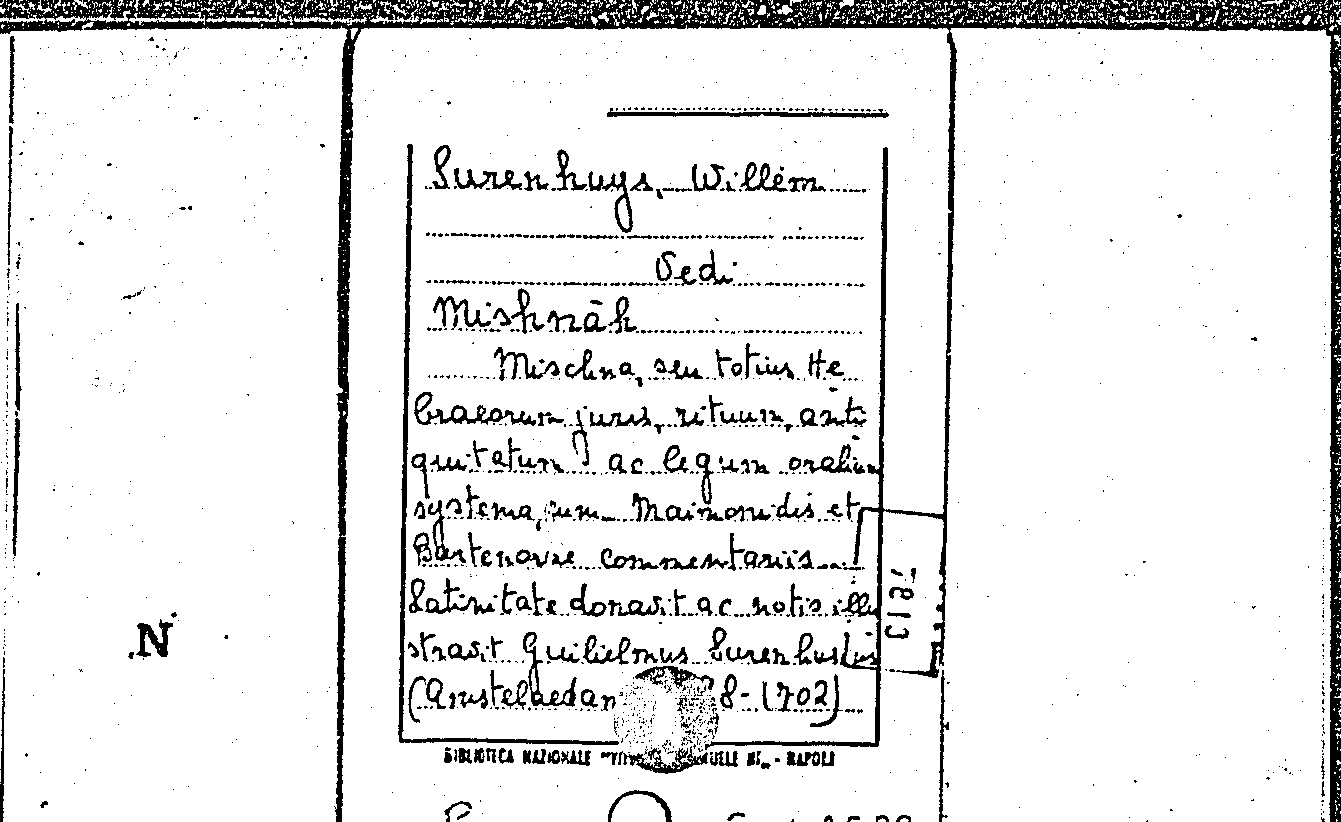 Surenhuys, Willem
Vedi
Mishnāh
Mischna, seu totius He
braeorum juris, rituum, anti
quitatum ac legum oralium
systema, cum Maimonidis et
Bartenorae commentariis...
Latinitate donavit ac notis illu
stravit Guilielmus Surenhusius
(Amstelaedam 8-1702)
BIBLIOTECA NAZIONALE - NAPOLI
N